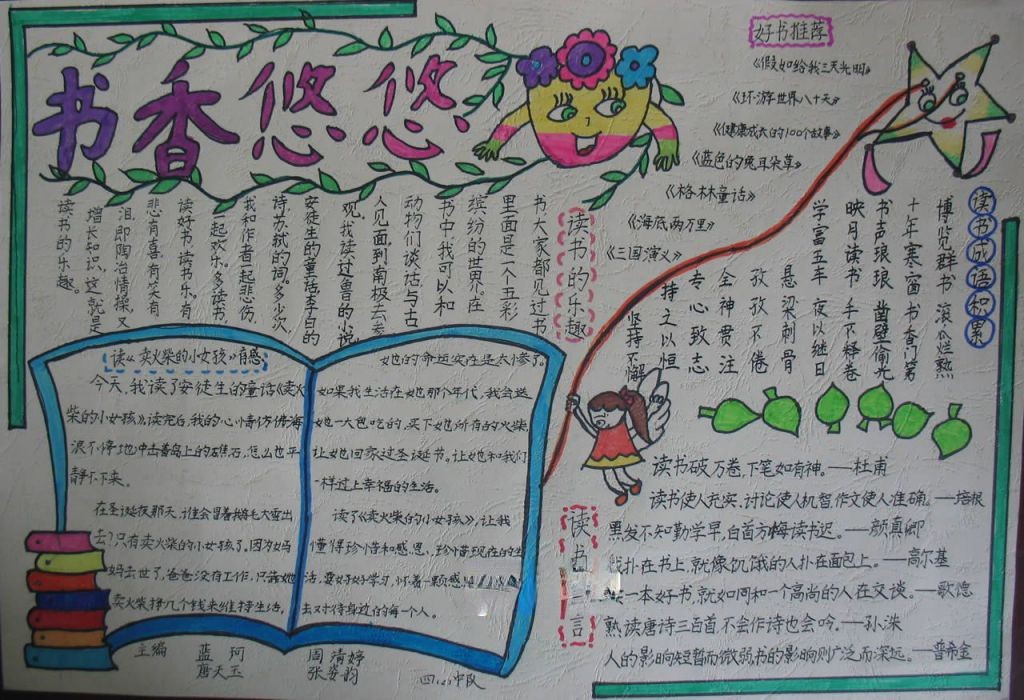 书香悠悠
好书推荐
《假如给我三天光明》
《环游世界八十天》
《健康成长的100个故事》
《蓝色的兔耳朵草》
《格林童话》
《海底两万里》
《三国演义》
读书的乐趣
书大家都见过书
里面是一个五彩
缤纷的世界在
书中我可以和
动物们谈话与古
人见面到南极去参
观。我读过鲁的小说
安徒生的童话李白的
诗苏轼的词。多少次
我和作者一起悲伤、
一起欢乐。多读书,
读好书读书乐、有
悲有喜有笑有
泪,即陶冶情操,又
增长知识。这就是
读书的乐趣。
读书成语积累
博览群书 滚瓜烂熟
十年寒窗 书香门第
书声琅琅 凿壁偷光
映月读书 手不释卷
学富五车 夜以继日
悬梁刺骨
孜孜不倦
全神贯注
专心致志
持之以恒
坚持不懈
读《卖火柴的小女孩》有感
今天,我读了安徒生的童话《卖火
柴的小女孩》读完后,我的心情仿佛海
浪不停地冲击着岛上的礁石,怎么也平
静不下来。
在圣诞夜那天,谁会冒着鹅毛大雪出
去?只有卖火柴的小女孩了。因为妈
妈去世了,爸爸没有工作,只靠她
卖火柴挣几个钱来维持生活。
她的命运实在是太惨了。
如果我生活在她那个年代,我会送
她一大包吃的,买下她所有的火柴,
让她回家过圣诞节。让她和我们
一样过上幸福的生活。
读了《卖火柴的小女孩》,让我
懂得珍惜和感恩、珍惜现在的生
活,要好好学习,怀着一颗感
去对待身边的每一个人。
读书名言
读书破万卷,下笔如有神。——杜甫
读书使人充实,讨论使人机智,作文使人准确。——培根
黑发不知勤学早,白首方悔读书迟。——颜真卿
我扑在书上,就像饥饿的人扑在面包上。——高尔基
读一本好书,就如同和一个高尚的人在交谈。——歌德
熟读唐诗三百首,不会作诗也会吟。——孙洙
人的影响短暂而微弱,书的影响则广泛而深远。——普希金
主编 蓝珂 周清婷
唐天玉 张姿韵
中队